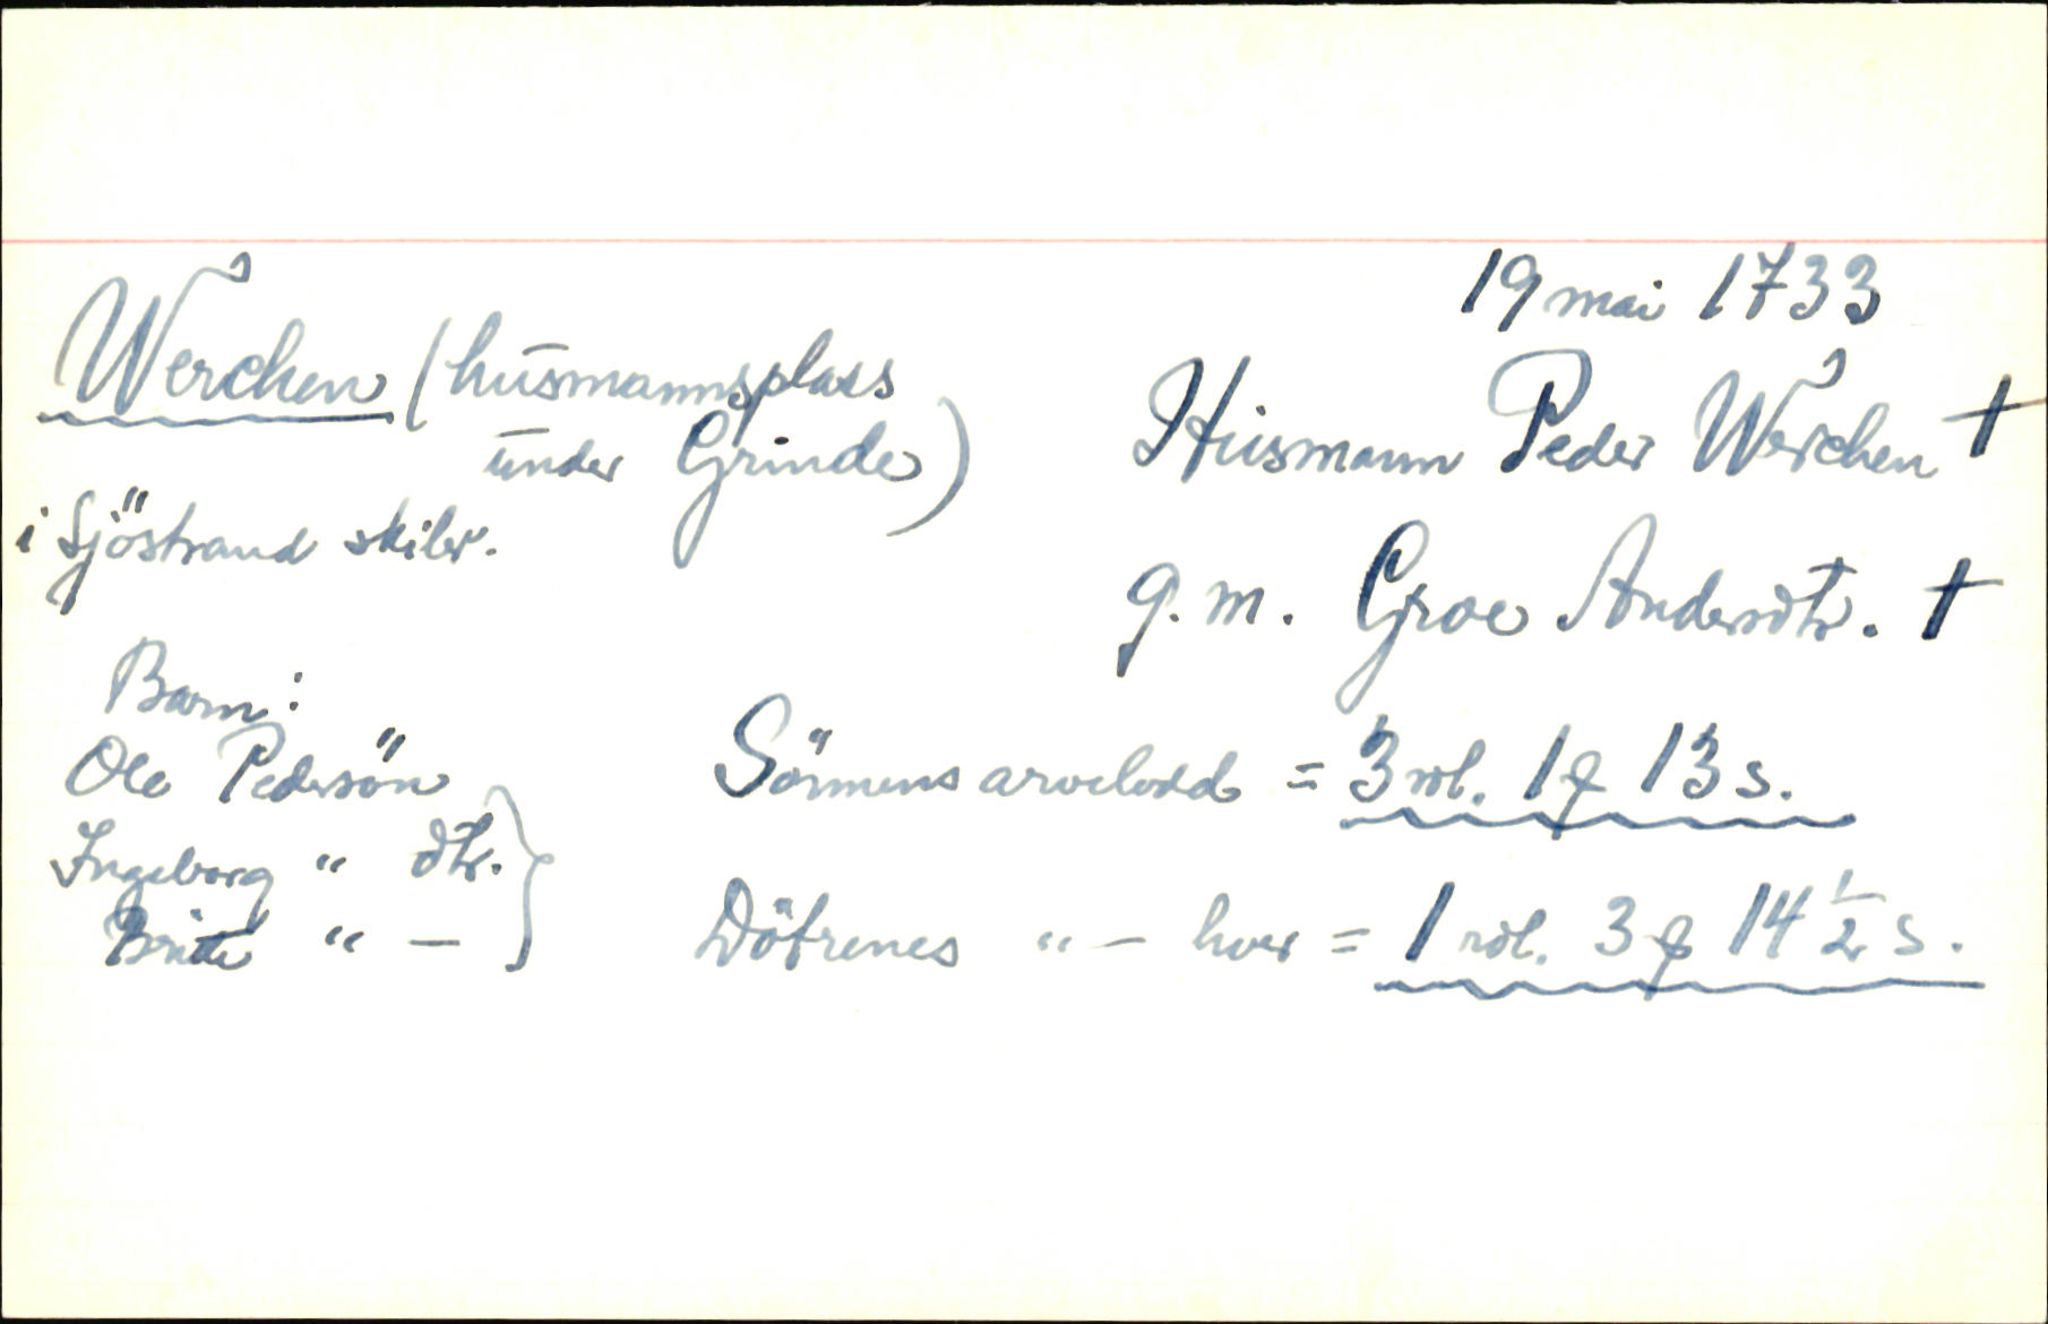 19 mai 1733
Werchen (husmannsplass
under Grinde)
i Sjöstrand skibr.
Husmann Peder Werchen †
g. m. Groe Andersdtr. †
Barn:
Ole Pedersön
Ingeborg " dtr.
Britte " —
Sönnens arvelodd = 3 rdl. 1 ƒ 13 s.
Döttrenes " — hver = 1 rdl. 3 ƒ 14 1/2 s.